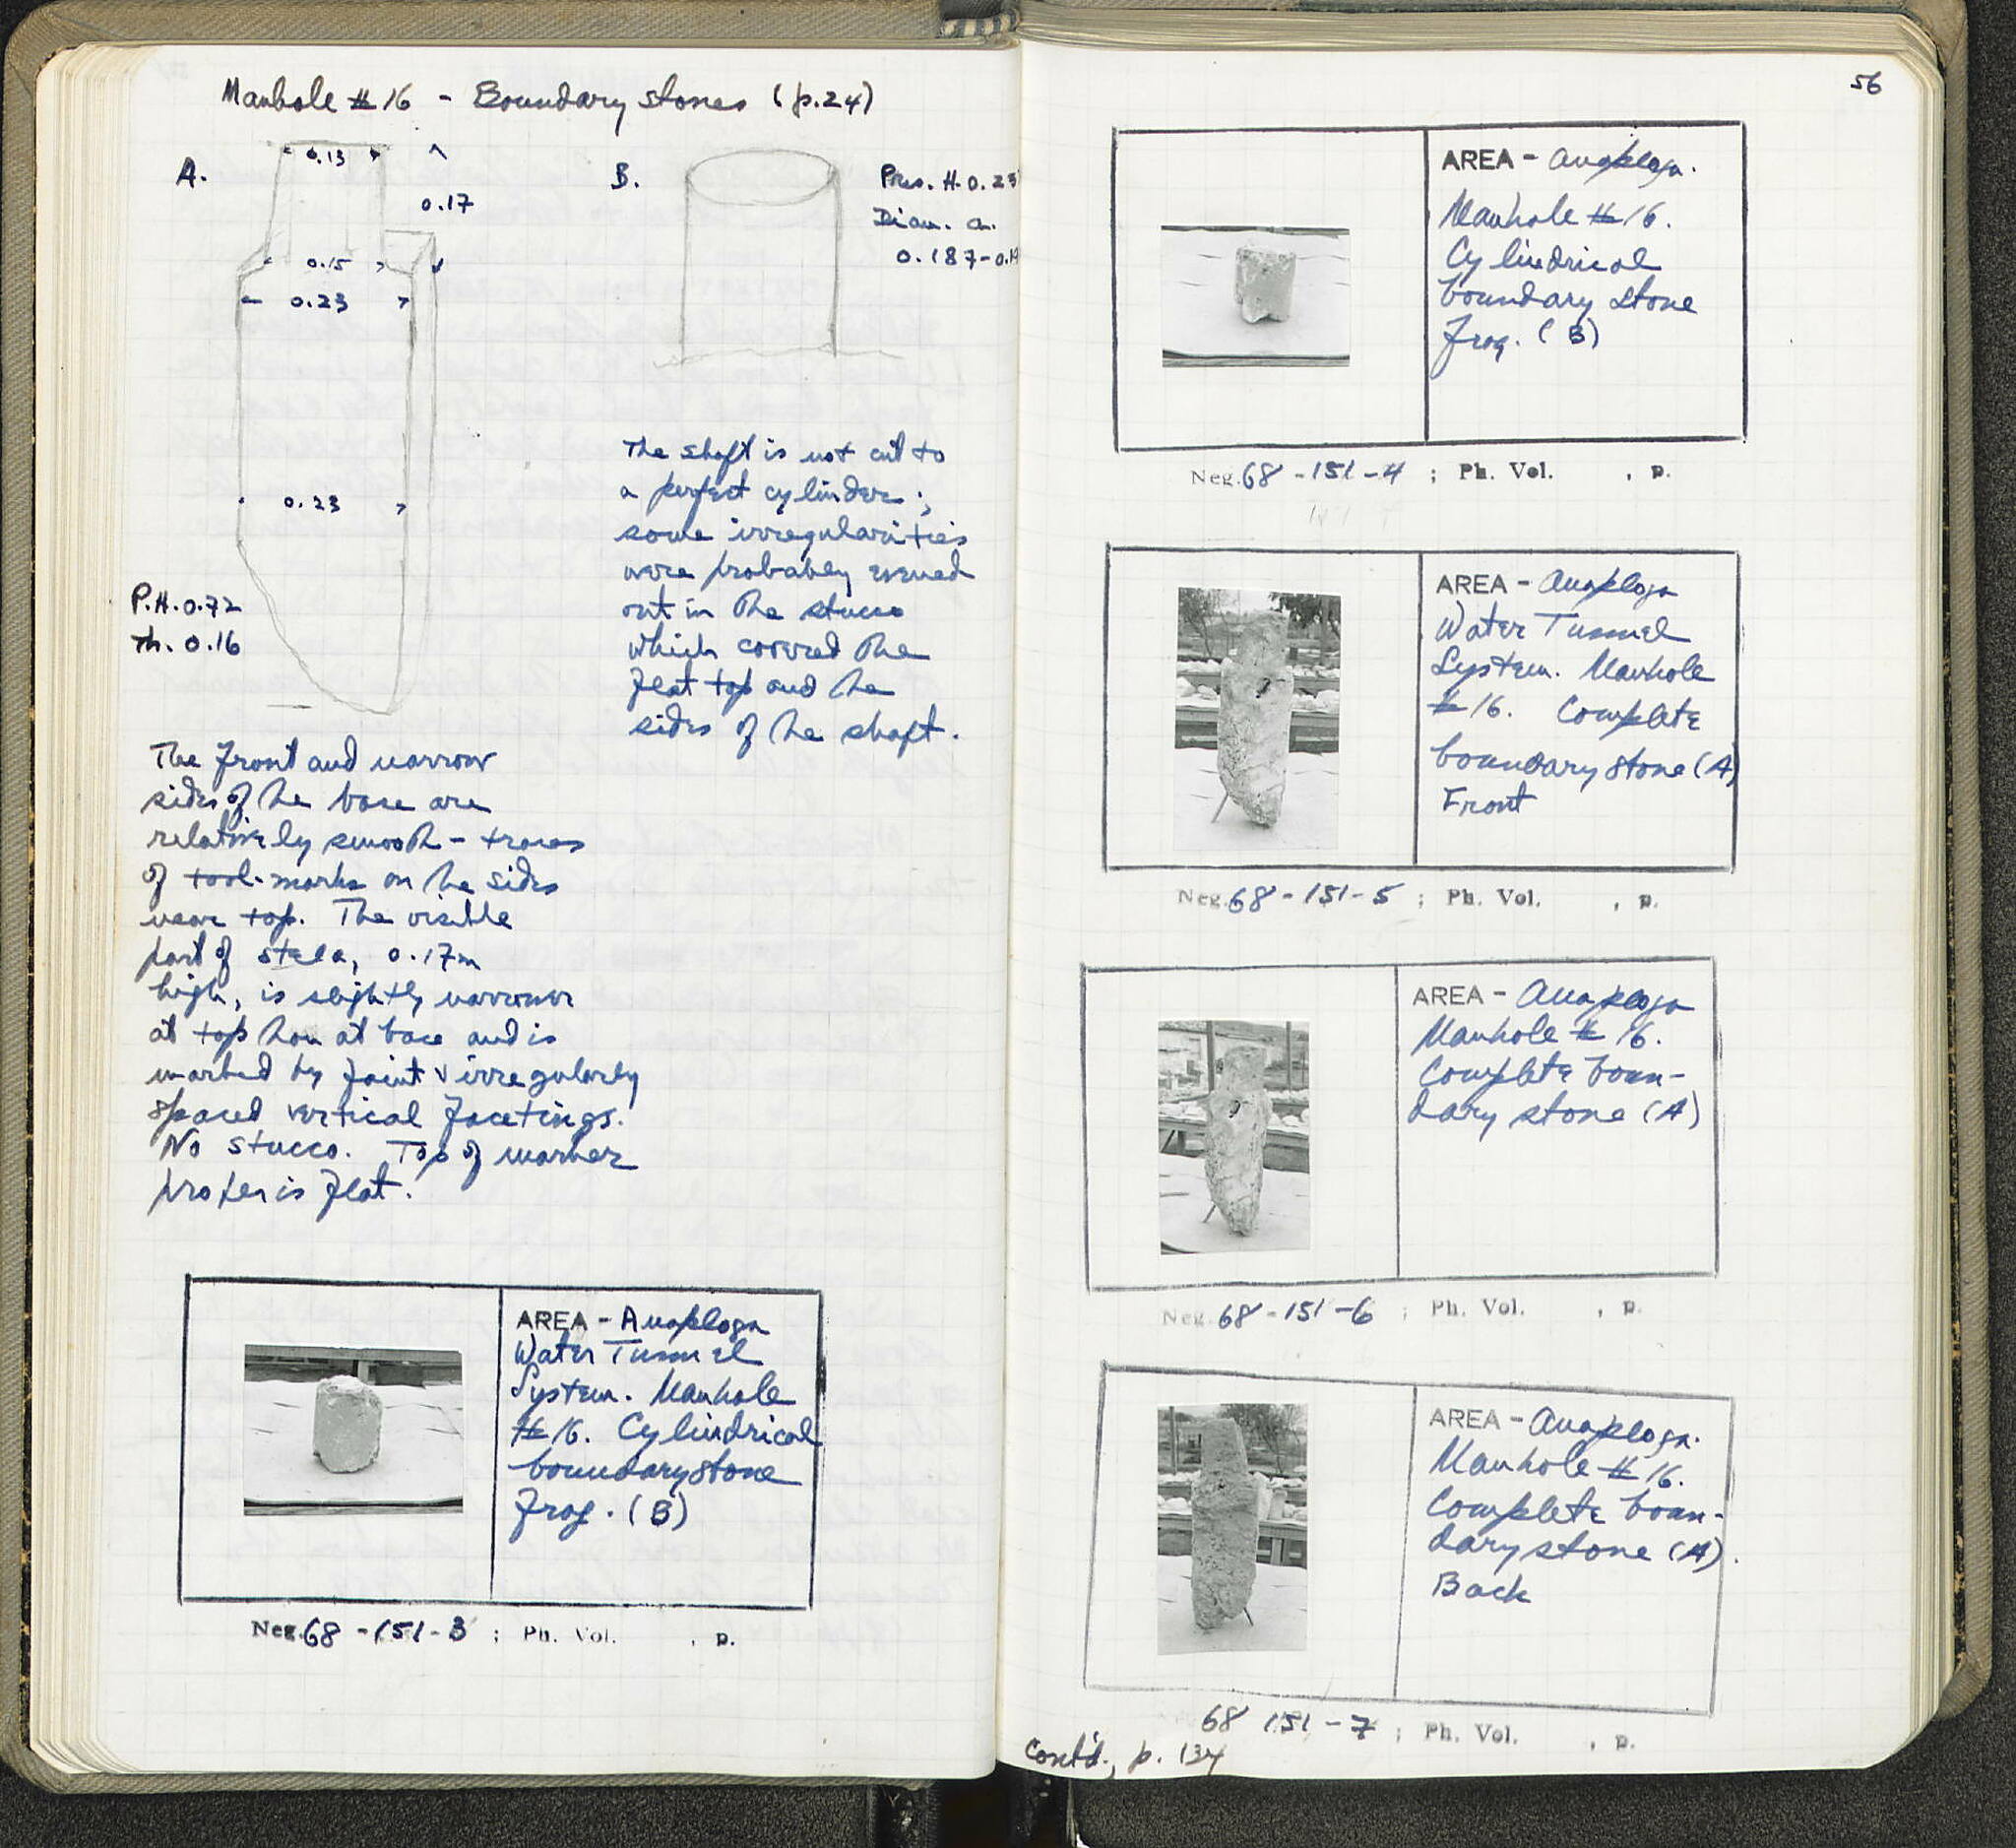 Manhole # 16 - Boundary stones (p.24)
A.
0.13
0.17
0.15
0.23
0.23
P.H. 0.72
Th. 0.16
B.
Pres. H. 0.23
Diam. a.
0.187-0.19
The shaft is not cut to
a perfect cylinder;
some irregularities
were probably evened
out in the stucco
which covered the
flat top and the
sides of the shaft.
The front and narrow
sides of the base are
relatively smooth - traces
of tool-marks on the sides
near top. The visible
part of stela, 0.17m
high, is slightly narrower
at top than at base and is
marked by faint & irregularly
spaced vertical facetings.
No stucco. Top of marker
proper is flat.
AREA - Anaploga
Water Tunnel
System. Manhole
# 16. Cylindrical
boundary stone
frag. (B)
Neg. 68 - 151 - 3 ; Ph. Vol. , p.
56
AREA - Anaploga.
Manhole # 16.
Cylindrical
boundary stone
frag. (B)
Neg. 68 - 151 - 4 ; Ph. Vol. , p.
AREA - Anaploga
Water Tunnel
System. Manhole
# 16. Complete
boundary stone (A)
Front
Neg. 68 - 151 - 5 ; Ph. Vol. , p.
AREA - Anaploga
Manhole # 16.
Complete boun-
dary stone (A)
Neg. 68 - 151 - 6 ; Ph. Vol. , p.
AREA - Anaploga.
Manhole # 16.
Complete boun-
dary stone (A).
Back
68 151 - 7 ; Ph. Vol. , p.
Cont'd., p. 134